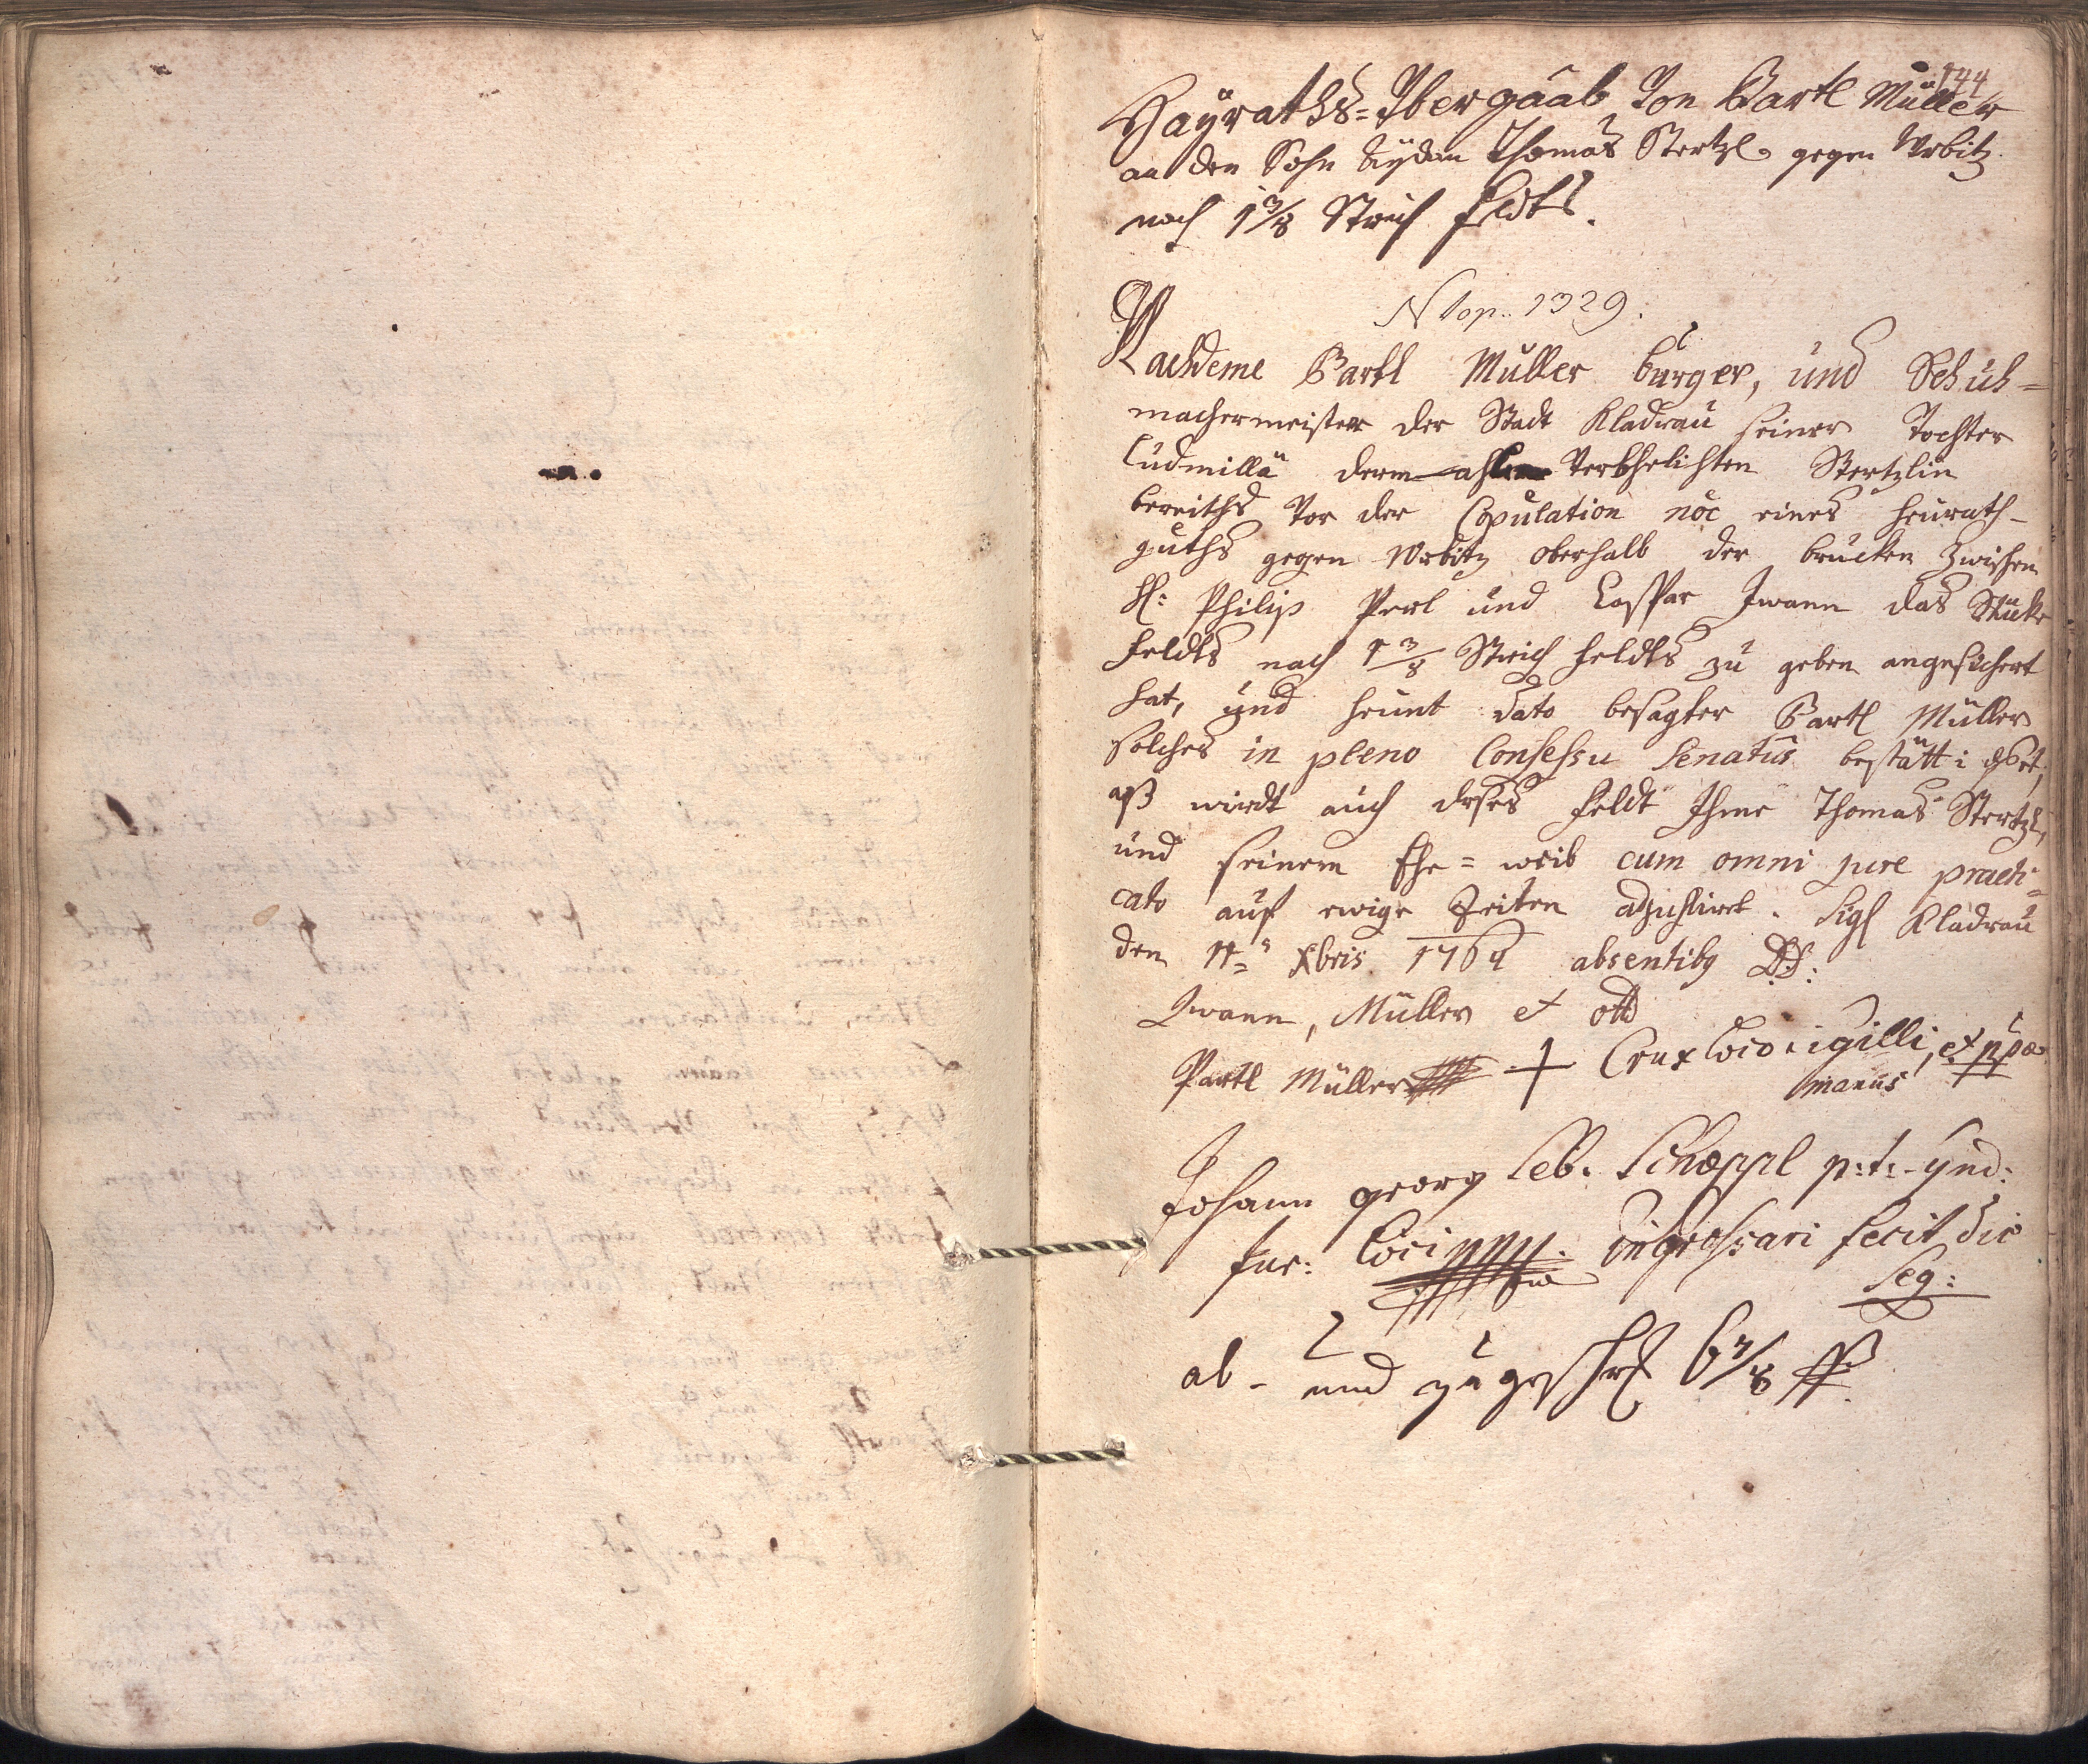 144
Hayraths-Ybergaab Von Bartl Müller
an den Sohn Aydam Thomas Stertzl gegen Wrbitz
nach 1 3/8 Strich Feldts.
N top. 1329.
Nachdeme Bartl Müller burger, und Schuh=
machermeister der Stadt Kladrau seiner Tochter
Ludmilla dermahlen Verehelichten Stertzlin
bereiths Vor der Copulation noe eines heurath-
guths gegen Wrbitz oberhalb der brucken zwischen
H: Philip Perl und Caspar Iwann das Stuk
Feldts nach 1 3/8 Strich Feldts zu geben angesichert
hat, und heunt dato besagter Bartl Müller
solches in pleno Consessu Senatus bestättiget,
aß wirdt auch dises Feldt Ihme Thomas Stertzl,
und seinem Ehe=weib cum omni jure praedi=
cato auf ewige Zeiten adjustirt. Sigl Kladrau
den 11= Xbris 1764 absentibq DD:
Iwann, Müller et Ott
Partl Müller + Crux loco Sigilli, et
manus
Johann georg Seb. Schoppl p:t: Synd:
Jur: loci mpp. Ingrossari fecit die
Seq:
ab- und zugeschr 6 7/8